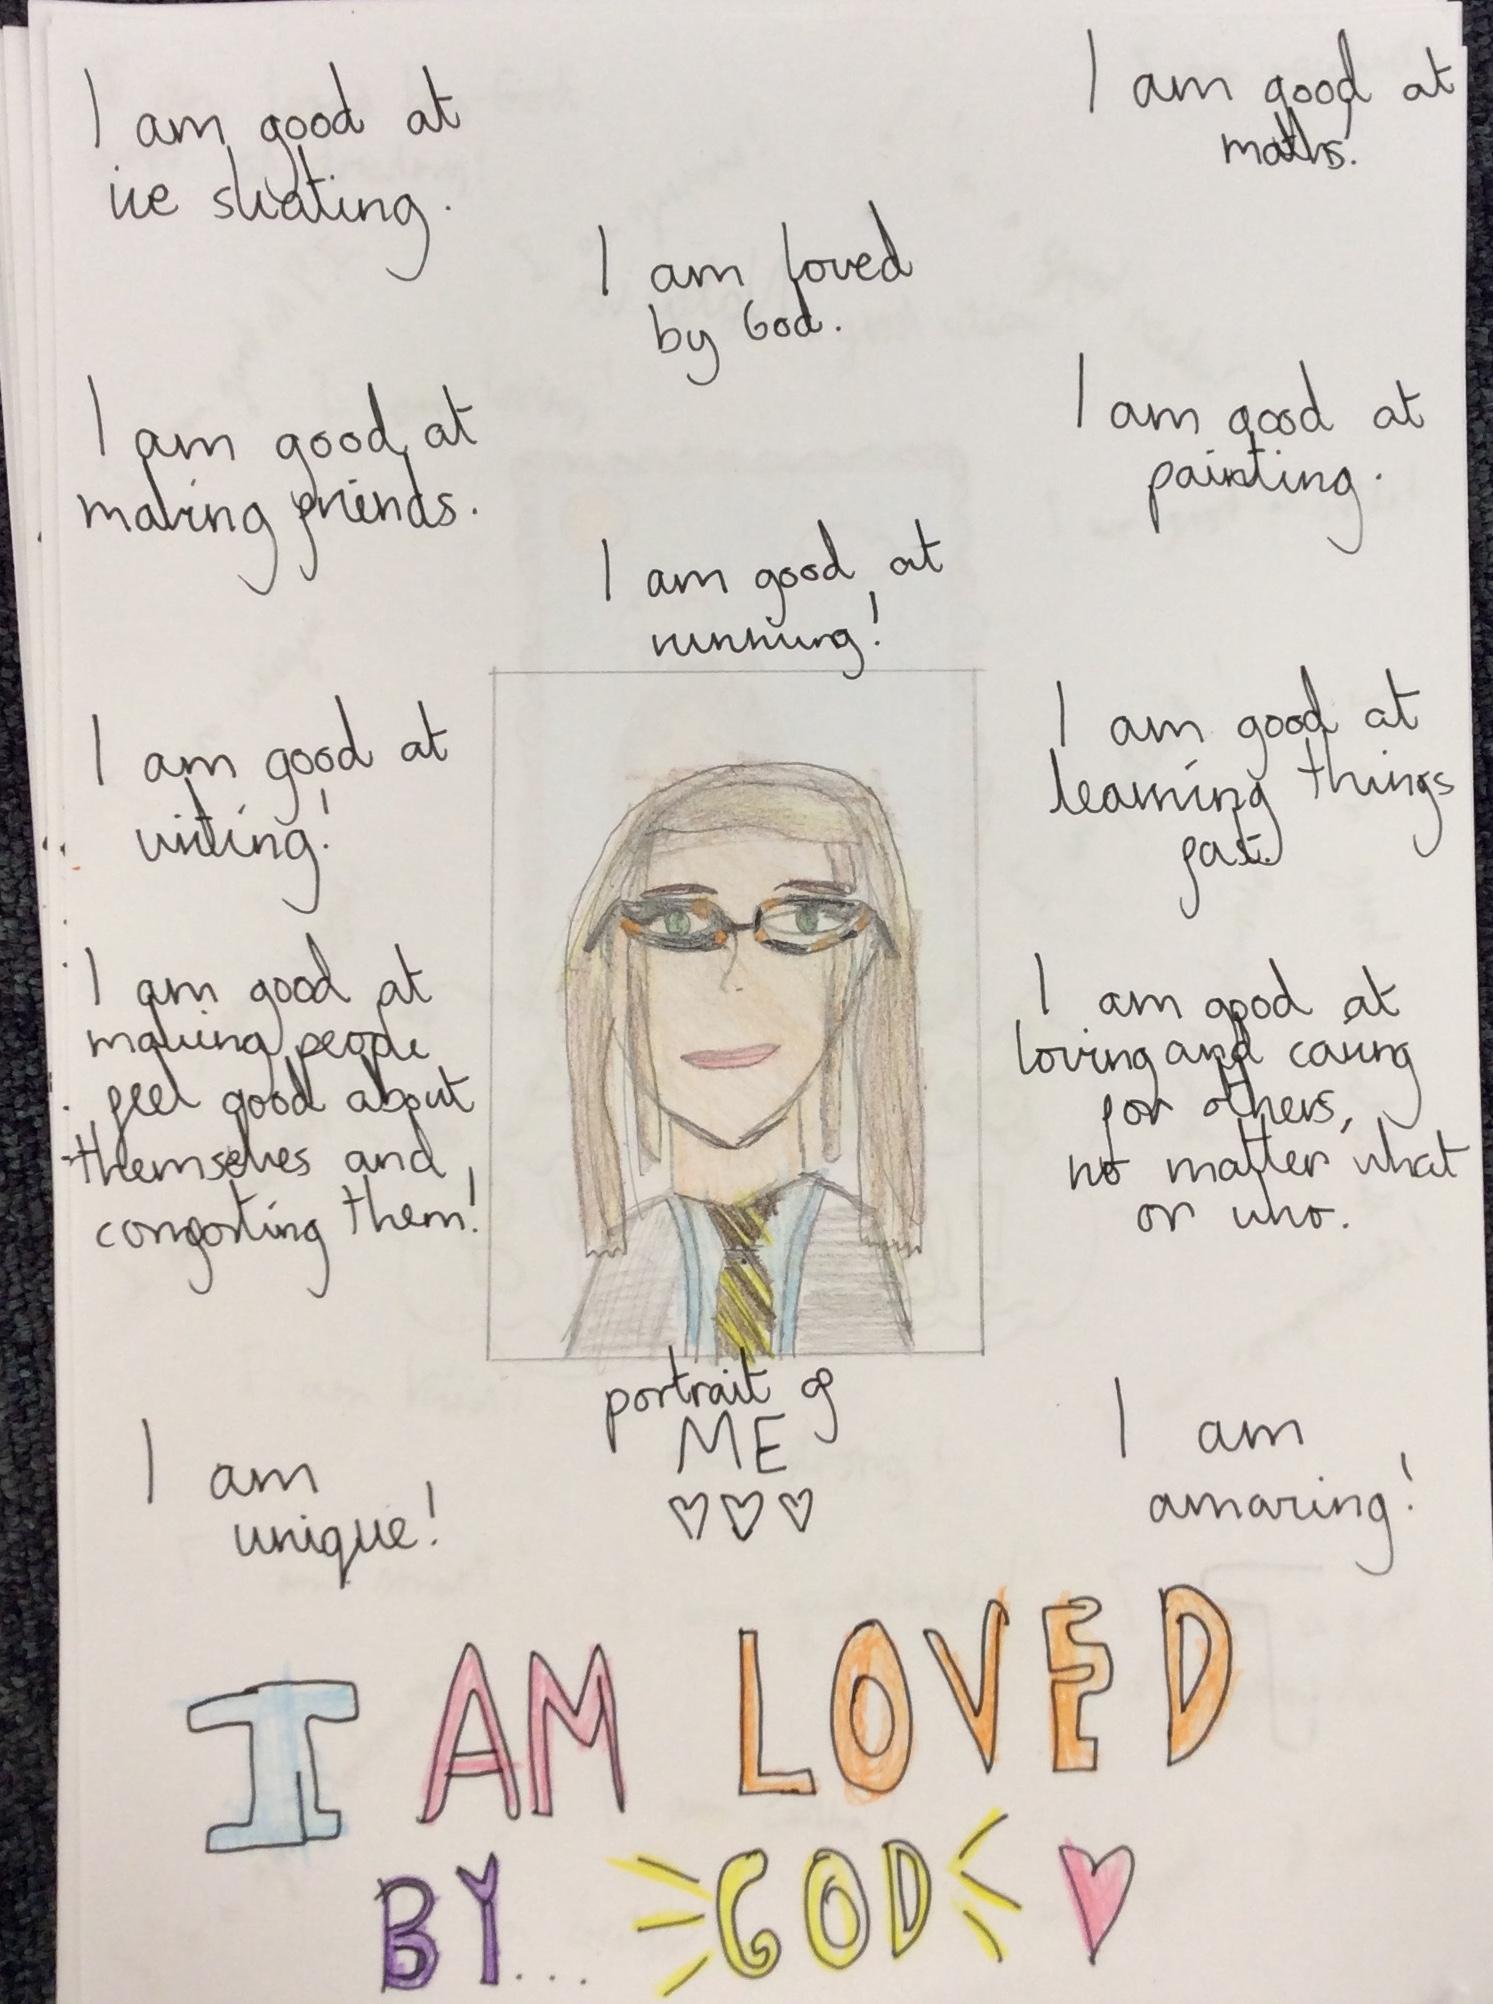 I am good at
ice skating.
I am good at
maths.
I am loved
by God.
I am good at
making friends.
I am good at
painting.
I am good at
running!
I am good at
writing!
I am good at
learning things
fast.
I am good at
making people
feel good about
themselves and
comforting them!
I am good at
loving and caring
for others,
no matter what
or who.
portrait of
ME
I am
unique!
I am
amazing!
I AM LOVED
BY... GOD